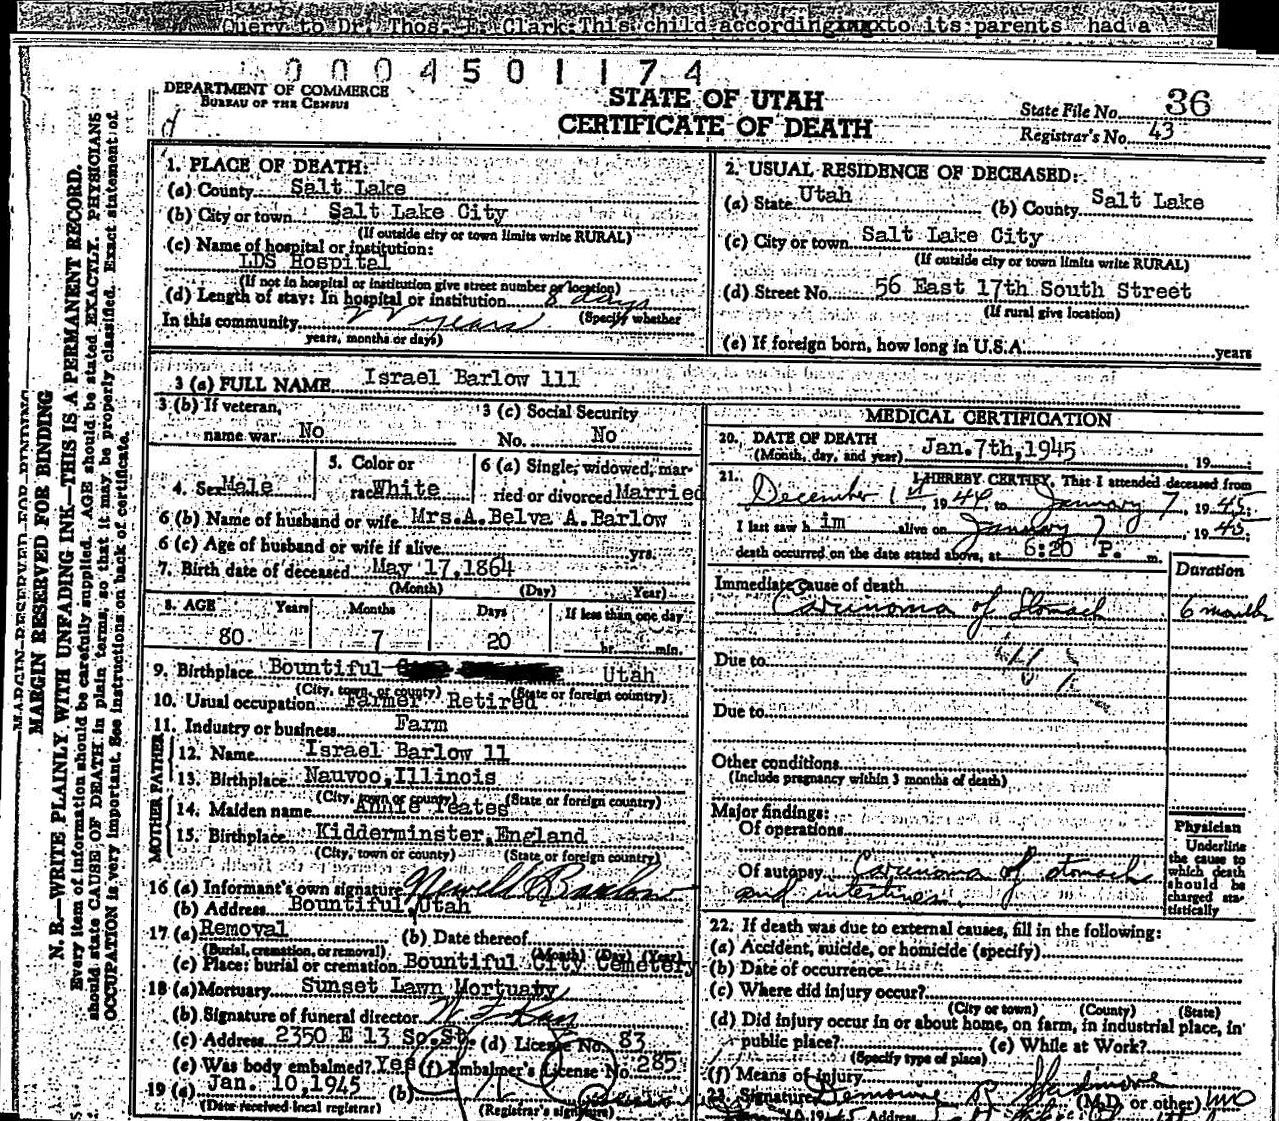 Query to Dr. Thos. E. Clark: This child according to its parents had a
0004501174
DEPARTMENT OF COMMERCE
BUREAU OF THE CENSUS
STATE OF UTAH
CERTIFICATE OF DEATH
State File No. 36
Registrar's No. 43
MARGIN RESERVED FOR BINDING
N. B.—WRITE PLAINLY WITH UNFADING INK—THIS IS A PERMANENT RECORD.
Every item of information should be carefully supplied. AGE should be stated EXACTLY. PHYSICIANS
should state CAUSE OF DEATH in plain terms, so that it may be properly classified. Exact statement of
OCCUPATION is very important. See instructions on back of certificate.
1. PLACE OF DEATH:
(a) County Salt Lake
(b) City or town Salt Lake City
(If outside city or town limits write RURAL)
(c) Name of hospital or institution:
LDS Hospital
(If not in hospital or institution give street number or location)
(d) Length of stay: In hospital or institution 8 days
(Specify whether
In this community years
years, months or days)
2. USUAL RESIDENCE OF DECEASED:
(a) State Utah (b) County Salt Lake
(c) City or town Salt Lake City
(If outside city or town limits write RURAL)
(d) Street No. 56 East 17th South Street
(If rural give location)
(e) If foreign born, how long in U.S.A. years
3 (a) FULL NAME Israel Barlow 111
3 (b) If veteran, name war No
3 (c) Social Security No. No
4. Sex Male
5. Color or race White
6 (a) Single, widowed, married or divorced Married
6 (b) Name of husband or wife Mrs.A.Belva A.Barlow
6 (c) Age of husband or wife if alive yrs.
7. Birth date of deceased May 17,1864
(Month) (Day) Year)
8. AGE Years Months Days If less than one day
80 7 20 hr. min.
9. Birthplace Bountiful Utah
(City, town, or county) (State or foreign country)
10. Usual occupation Farmer Retired
11. Industry or business Farm
FATHER
12. Name Israel Barlow 11
13. Birthplace Nauvoo,Illinois
(City, town or county) (State or foreign country)
MOTHER
14. Maiden name Annie Yeates
15. Birthplace Kidderminster,England
(City, town or county) (State or foreign country)
16 (a) Informant's own signature Newell Barlow
(b) Address Bountiful,Utah
17 (a) Removal (b) Date thereof
(Burial, cremation, or removal) (Month) (Day) (Year)
(c) Place: burial or cremation Bountiful City Cemetery
18 (a) Mortuary Sunset Lawn Mortuary
(b) Signature of funeral director
(c) Address 2350 E 13 So.St. (d) License No. 83
(e) Was body embalmed? Yes (f) Embalmer's License No. 285
19 (a) Jan. 10,1945 (b)
(Date received local registrar) (Registrar's signature)
MEDICAL CERTIFICATION
20. DATE OF DEATH Jan.7th,1945
(Month, day, and year) , 19
21. I HEREBY CERTIFY, That I attended deceased from
December 1st, 1944, to January 7, 1945;
I last saw him alive on January 7, 1945;
death occurred on the date stated above, at 6:20 P. m.
Duration
Immediate cause of death
Carcinoma of Stomach 6 months
Due to
Due to
Other conditions
(Include pregnancy within 3 months of death)
Major findings:
Of operations
Of autopsy Carcinoma of stomach
and intestines.
Physician
Underline
the cause to
which death
should be
charged sta-
tistically
22. If death was due to external causes, fill in the following:
(a) Accident, suicide, or homicide (specify)
(b) Date of occurrence
(c) Where did injury occur?
(City or town) (County) (State)
(d) Did injury occur in or about home, on farm, in industrial place, in
public place? (e) While at Work?
(Specify type of place)
(f) Means of injury
23. Signature (M.D. or other) MD
Address